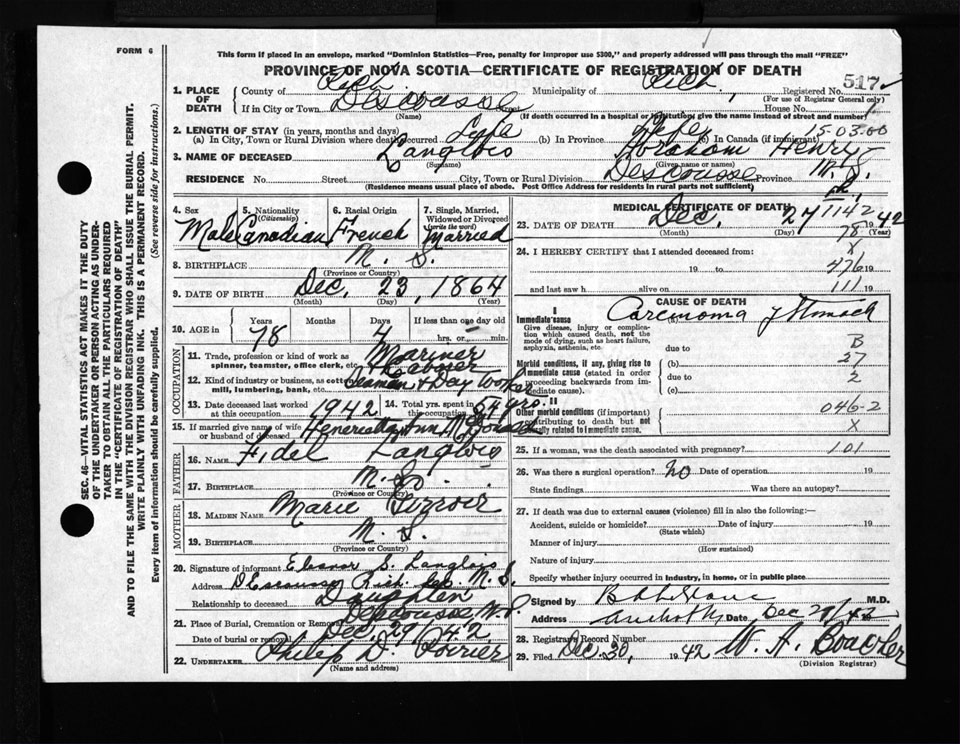 FORM 6
This form if placed in an envelope, marked "Dominion Statistics—Free, penalty for improper use $300," and properly addressed will pass through the mail "FREE"
PROVINCE OF NOVA SCOTIA—CERTIFICATE OF REGISTRATION OF DEATH
517
1. PLACE OF DEATH
County of Rich Municipality of Rich, Registered No.
(For use of Registrar General only)
If in City or Town Descousse Street House No.
(Name) (If death occurred in a hospital or institution, give the name instead of street and number)
2. LENGTH OF STAY (in years, months and days)
(a) In City, Town or Rural Division where death occurred Life (b) In Province Life (c) In Canada (if immigrant) 15-03.00
3. NAME OF DECEASED Langlois Abraham Henry
(Surname) (Given name or names)
RESIDENCE No. Street City, Town or Rural Division Descousse Province N. S.
(Residence means usual place of abode. Post Office Address for residents in rural parts not sufficient)
4. Sex Male
5. Nationality (Citizenship) Canadian
6. Racial Origin French
7. Single, Married, Widowed or Divorced (write the word) Married
8. BIRTHPLACE N. S.
(Province or Country)
9. DATE OF BIRTH Dec, 23, 1864
(Month) (Day) (Year)
10. AGE in Years Months Days If less than one day old
78 4 hrs. or min.
OCCUPATION
11. Trade, profession or kind of work as spinner, teamster, office clerk, etc. Mariner & Laborer
12. Kind of industry or business, as cotton mill, lumbering, bank, etc. Seaman & Day Work
13. Date deceased last worked at this occupation 1942
14. Total yrs. spent in this occupation 54 yrs.
15. If married give name of wife or husband of deceased Ann
FATHER
16. NAME Fidel Langlois
17. BIRTHPLACE N. S.
(Province or Country)
MOTHER
18. MAIDEN NAME Marie
19. BIRTHPLACE N. S.
(Province or Country)
20. Signature of informant Eleanor S. Langlois
Address Rich. Co. N. S.
Relationship to deceased Daughter
21. Place of Burial, Cremation or Removal Descousse N. S.
Date of burial or removal Dec. 29/42
22. UNDERTAKER Philip D. Poirier
(Name and address)
MEDICAL CERTIFICATE OF DEATH
23. DATE OF DEATH Dec, 27 1942
1142
(Month) (Day) (Year)
78
24. I HEREBY CERTIFY that I attended deceased from:
X
19 to 19
476
and last saw h alive on 19
111
CAUSE OF DEATH
I
Immediate cause Carcinoma of Stomach
Give disease, injury or complication which caused death, not the mode of dying, such as heart failure, asphyxia, asthenia, etc.
due to B
Morbid conditions, if any, giving rise to immediate cause (stated in order proceeding backwards from immediate cause).
(b) 27
due to 2
(c)
II
Other morbid conditions (if important) contributing to death but not causally related to immediate cause.
046-2
X
25. If a woman, was the death associated with pregnancy? 101
26. Was there a surgical operation? No Date of operation 19
State findings Was there an autopsy?
27. If death was due to external causes (violence) fill in also the following:—
Accident, suicide or homicide? Date of injury 19
(State which)
Manner of injury
(How sustained)
Nature of injury
Specify whether injury occurred in industry, in home, or in public place
Signed by M.D.
Address Date Dec 29/42
28. Registrars Record Number
29. Filed Dec. 30, 1942 W. A.
(Division Registrar)
SEC. 46—VITAL STATISTICS ACT MAKES IT THE DUTY
OF THE UNDERTAKER OR PERSON ACTING AS UNDER-
TAKER TO OBTAIN ALL THE PARTICULARS REQUIRED
IN THE "CERTIFICATE OF REGISTRATION OF DEATH"
AND TO FILE THE SAME WITH THE DIVISION REGISTRAR WHO SHALL ISSUE THE BURIAL PERMIT.
WRITE PLAINLY WITH UNFADING INK. THIS IS A PERMANENT RECORD.
Every item of information should be carefully supplied. (See reverse side for instructions.)